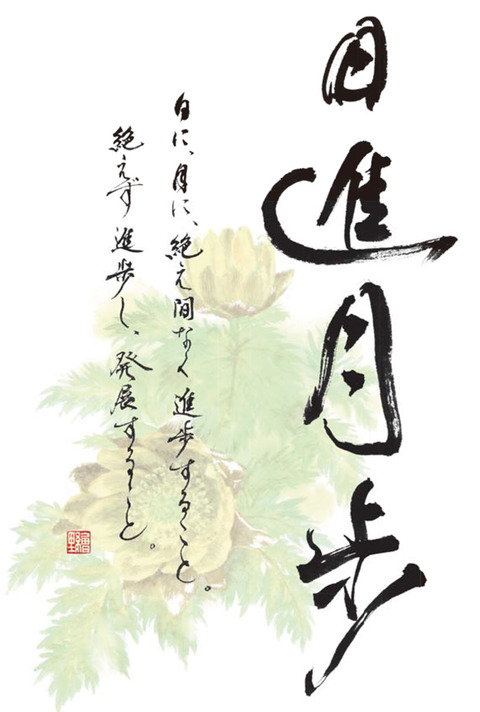 日進月歩
日に、月に、絶え間なく進歩すること。
絶えず進歩し、発展すること。